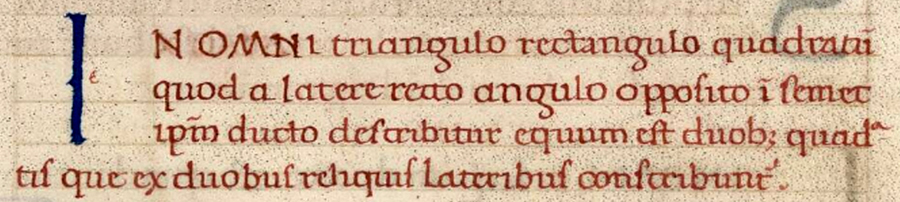 IN OMNI triangulo rectangulo quadratū
quod a latere recto angulo opposito ī semet
ipm̄ ducto describitur equum est duob; quadᵃ
tis que ex duobus reliquis lateribus conscribunt᷑.